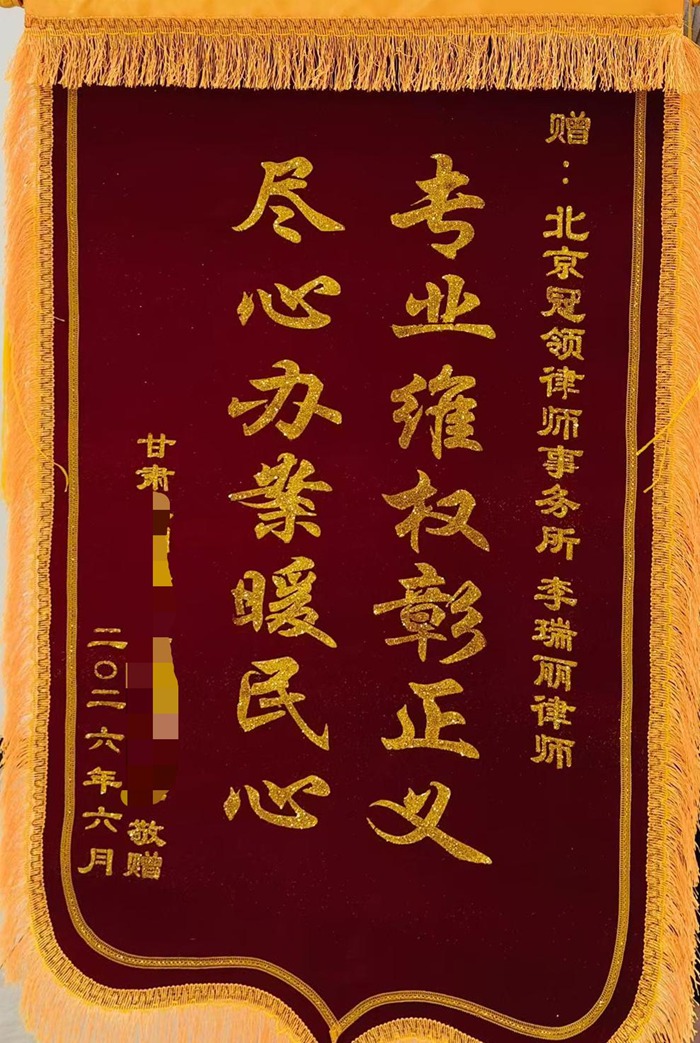 赠：北京冠领律师事务所 李瑞丽律师
专业维权彰正义
尽心办案暖民心
甘肃
敬赠
二〇二六年六月